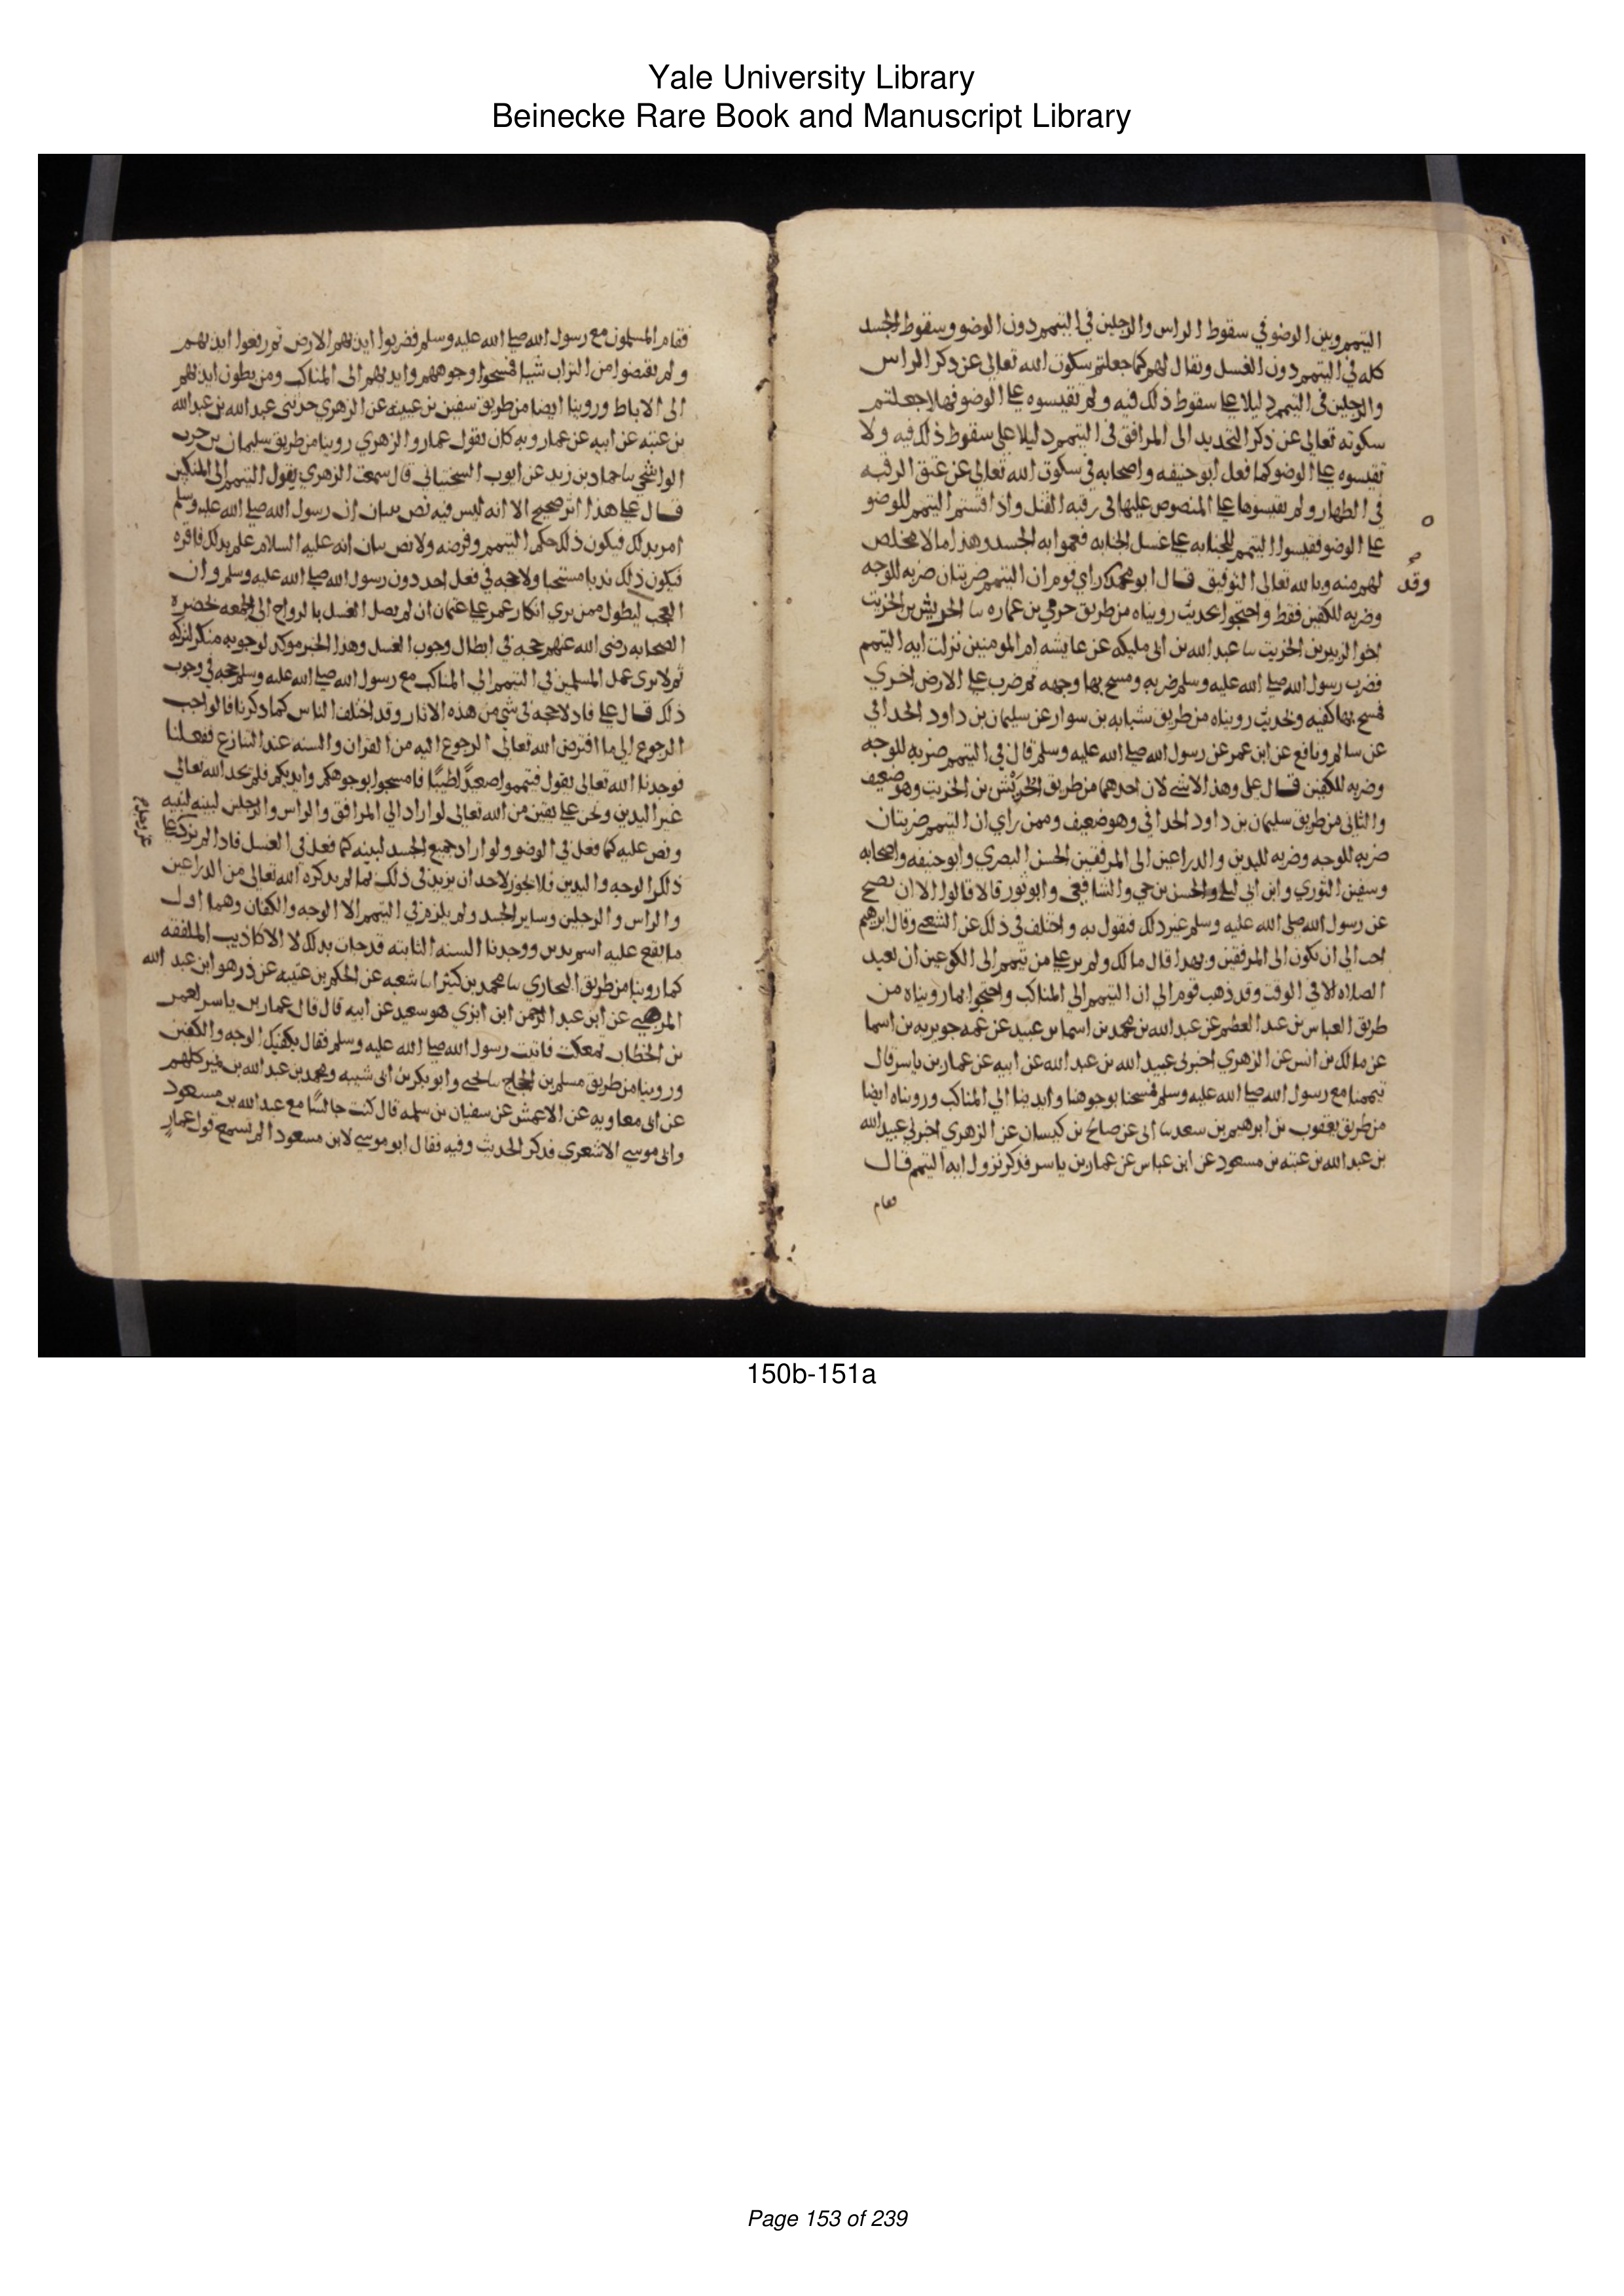 Yale University Library
Beinecke Rare Book and Manuscript Library
التيمم وبين الوضو في سقوط الراس والرجلين في التيمم دون الوضو وسقوط الجسد
كله في التيمم دون الغسل ويقال لهم كما جعلتم سكوت الله تعالى عن ذكر الراس
والرجلين في التيمم دليلا على سقوط ذلك فيه ولم تقيسوه على الوضو فهلا جعلتم
سكوته تعالى عن ذكر التحديد الى المرافق في التيمم دليلا على سقوط ذلك فيه ولا
تقيسوه على الوضو كما فعل ابو حنيفه واصحابه في سكوت الله تعالى عن عتق الرقبه
في الظهار ولم تقيسوها على المنصوص عليها في رقبه القتل واذا قستم التيمم للوضو
على الوضو فقيسوا التيمم للجنابه على غسل الجنابه فعموا به الجسد وهذا ما لا مخلص
لهم منه وبالله تعالى التوفيق قال ابو محمد راي قوم ان التيمم ضربتان ضربه للوجه
وقد
وضربه للكفين فقط واحتجوا بحديث رويناه من طريق حرمي بن عماره نا الحريش بن الخريت
اخو الزبير بن الخريت نا عبد الله بن ابي مليكه عن عايشه ام المومنين نزلت ايه التيمم
فضرب رسول الله صلى الله عليه وسلم ضربه ومسح بها وجهه ثم ضرب على الارض اخري
فمسح بها كفيه وبحديث رويناه من طريق شبابه بن سوار عن سليمان بن داود الحداني
عن سالم ونافع عن ابن عمر عن رسول الله صلى الله عليه وسلم قال في التيمم ضربه للوجه
وضربه للكفين قال علي وهذا لا شي لان احدهما من طريق الحريش بن الخريت وهو ضعيف
والثاني من طريق سليمان بن داود الحداني وهو ضعيف وممن راي ان التيمم ضربتان
ضربه للوجه وضربه لليدين والدراعين الى المرفقين الحسن البصري وابو حنيفه واصحابه
وسفين الثوري وابن ابي ليلي والحسن بن حي والشافعي وابو ثور قالا قالوا الا ان يصح
عن رسول الله صلى الله عليه وسلم غير ذلك فنقول به واختلف في ذلك عن الشعبي وقال ابرهيم
احب الي ان يكون الى المرفقين وبهدا قال مالك ولم ير على من تيمم الى الكوعين ان يعيد
الصلاه الا في الوقت وقد ذهب قوم الى ان التيمم الى المناكب واحتجوا بما رويناه من
طريق العباس بن عبد العظيم عن عبد الله بن محمد بن اسما بن عبيد عن عمه جويريه بن اسما
عن مالك بن انس عن الزهري اخبرني عبيد الله بن عبد الله عن ابيه عن عمار بن ياسر قال
تيممنا مع رسول الله صلى الله عليه وسلم فمسحنا بوجوهنا وايدينا الى المناكب ورويناه ايضا
من طريق يعقوب بن ابرهيم بن سعد نا ابي عن صالح بن كيسان عن الزهري اخبرني عبيد الله
بن عبد الله بن عتبه بن مسعود عن ابن عباس عن عمار بن ياسر فذكر نزول ايه التيمم قال
فقام
فقام المسلمون مع رسول الله صلى الله عليه وسلم فضربوا ايديهم الارض ثم رفعوا ايديهم
ولم يقبضوا من التراب شيا فمسحوا وجوههم وايديهم الى المناكب ومن بطون ايديهم
الى الاباط وروينا ايضا من طريق سفين بن عيينه عن الزهري حدثني عبد الله بن عبد الله
بن عتبه عن ابيه عن عمار وبه كان يقول عمار والزهري روينا من طريق سليمان بن حرب
الواشحي نا حماد بن زيد عن ايوب السختياني قال سمعت الزهري يقول التيمم الى المنكبين
قال علي هذا اثر صحيح الا انه ليس فيه نص بيان ان رسول الله صلى الله عليه وسلم
امر بدلك فيكون ذلك حكم التيمم وفرضه ولا نص بيان انه عليه السلام علم بدلك فاقره
فيكون ذلك ندبا مستحبا ولا حجه في فعل احد دون رسول الله صلى الله عليه وسلم وان
العجب ليطول ممن يري انكار عمر على عثمان ان لم يصل الغسل بالرواح الى الجمعه بحضره
الصحابه رضي الله عنهم حجه في ابطال وجوب الغسل وهذا الخبر موكد لوجوبه منكر لتركه
ثم لا يري عمل المسلمين في التيمم الى المناكب مع رسول الله صلى الله عليه وسلم حجه في وجوب
ذلك قال علي فاذ لا حجه في شي من هذه الاثار وقد اختلف الناس كما دكرنا فالواجب
الرجوع الى ما افترض الله تعالى الرجوع اليه من القران والسنه عند التنازع ففعلنا
فوجدنا الله تعالى يقول فتيمموا صعيدا طيبا فامسحوا بوجوهكم وايديكم فلم يحد الله تعالى
غير اليدين ونحن على يقين من ان الله تعالى لو اراد الى المرافق والراس والرجلين لبينه
ونص عليه كما فعل في الوضو ولو اراد جميع الجسد لبينه كما فعل في الغسل فاذا لم يزد على
ذلك الوجه واليدين فلا يجوز لاحد ان يزيد في ذلك ما لم يدكره الله تعالى من الدراعين
والراس والرجلين وساير الجسد ولم يلزم في التيمم الا الوجه والكفان وهما اول
ما يقع عليه اسم يدين ووجدنا السنه الثابته قد جات بدلك لا الاكاذيب الملفقه
كما روينا من طريق البخاري نا محمد بن كثير انا شعبه عن الحكم بن عتيبه عن ذر هو ابن عبد الله
المرهبي عن ابن عبد الرحمن ابن ابزي هو سعيد عن ابيه قال قال عمار بن ياسر لعمر
بن الخطاب تمعكت فاتيت رسول الله صلى الله عليه وسلم فقال يكفيك الوجه والكفين
وروينا من طريق مسلم بن الحجاج نا يحيي وابو بكر بن ابي شيبه ومحمد بن عبد الله بن نمير كلهم
عن ابي معاويه عن الاعمش عن سفيان بن سلمه قال كنت جالسا مع عبد الله بن مسعود
وابي موسي الاشعري فدكر الحديث وفيه فقال ابو موسي لابن مسعود الم تسمع قول عمار
150b-151a
Page 153 of 239